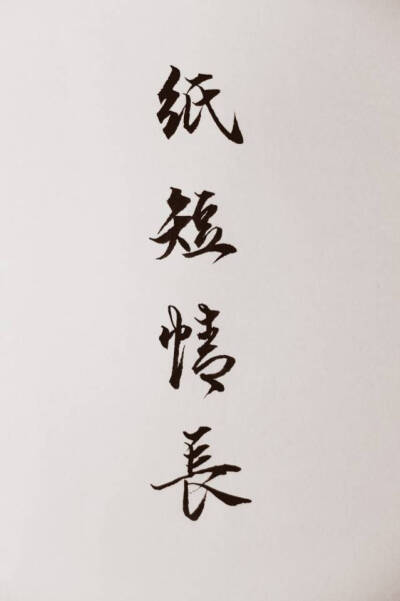 纸短情長